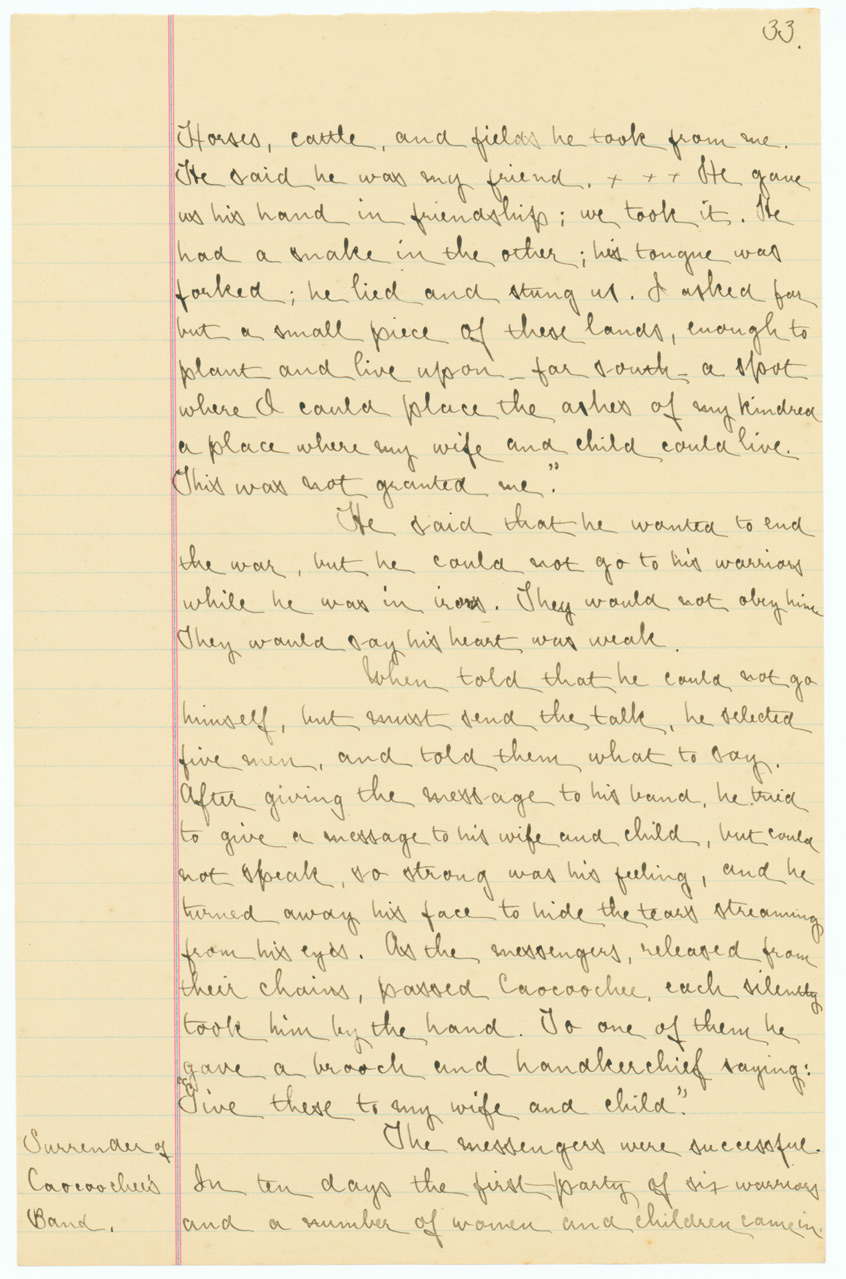 33.
Horses, cattle, and fields he took from me.
He said he was my friend. x x x He gave
us his hand in friendship; we took it. He
had a snake in the other; his tongue was
forked; he lied and stung us. I asked for
but a small piece of these lands, enough to
plant and live upon - far south - a spot
where I could place the ashes of my kindred
a place where my wife and child could live.
This was not granted me."
He said that he wanted to end
the war, but he could not go to his warriors
while he was in irons. They would not obey him
They would say his heart was weak.
When told that he could not go
himself, but must send the talk, he selected
five men, and told them what to say.
After giving the message to his band, he tried
to give a message to his wife and child, but could
not speak, so strong was his feeling, and he
turned away his face to hide the tears streaming
from his eyes. As the messengers, released from
their chains, passed Caocoochee, each silently
took him by the hand. To one of them he
gave a brooch and handkerchief saying:
"Give these to my wife and child."
The messengers were successful.
Surrender of
Caocoochee's
Band.
In ten days the first party of six warriors
and a number of women and children came in.